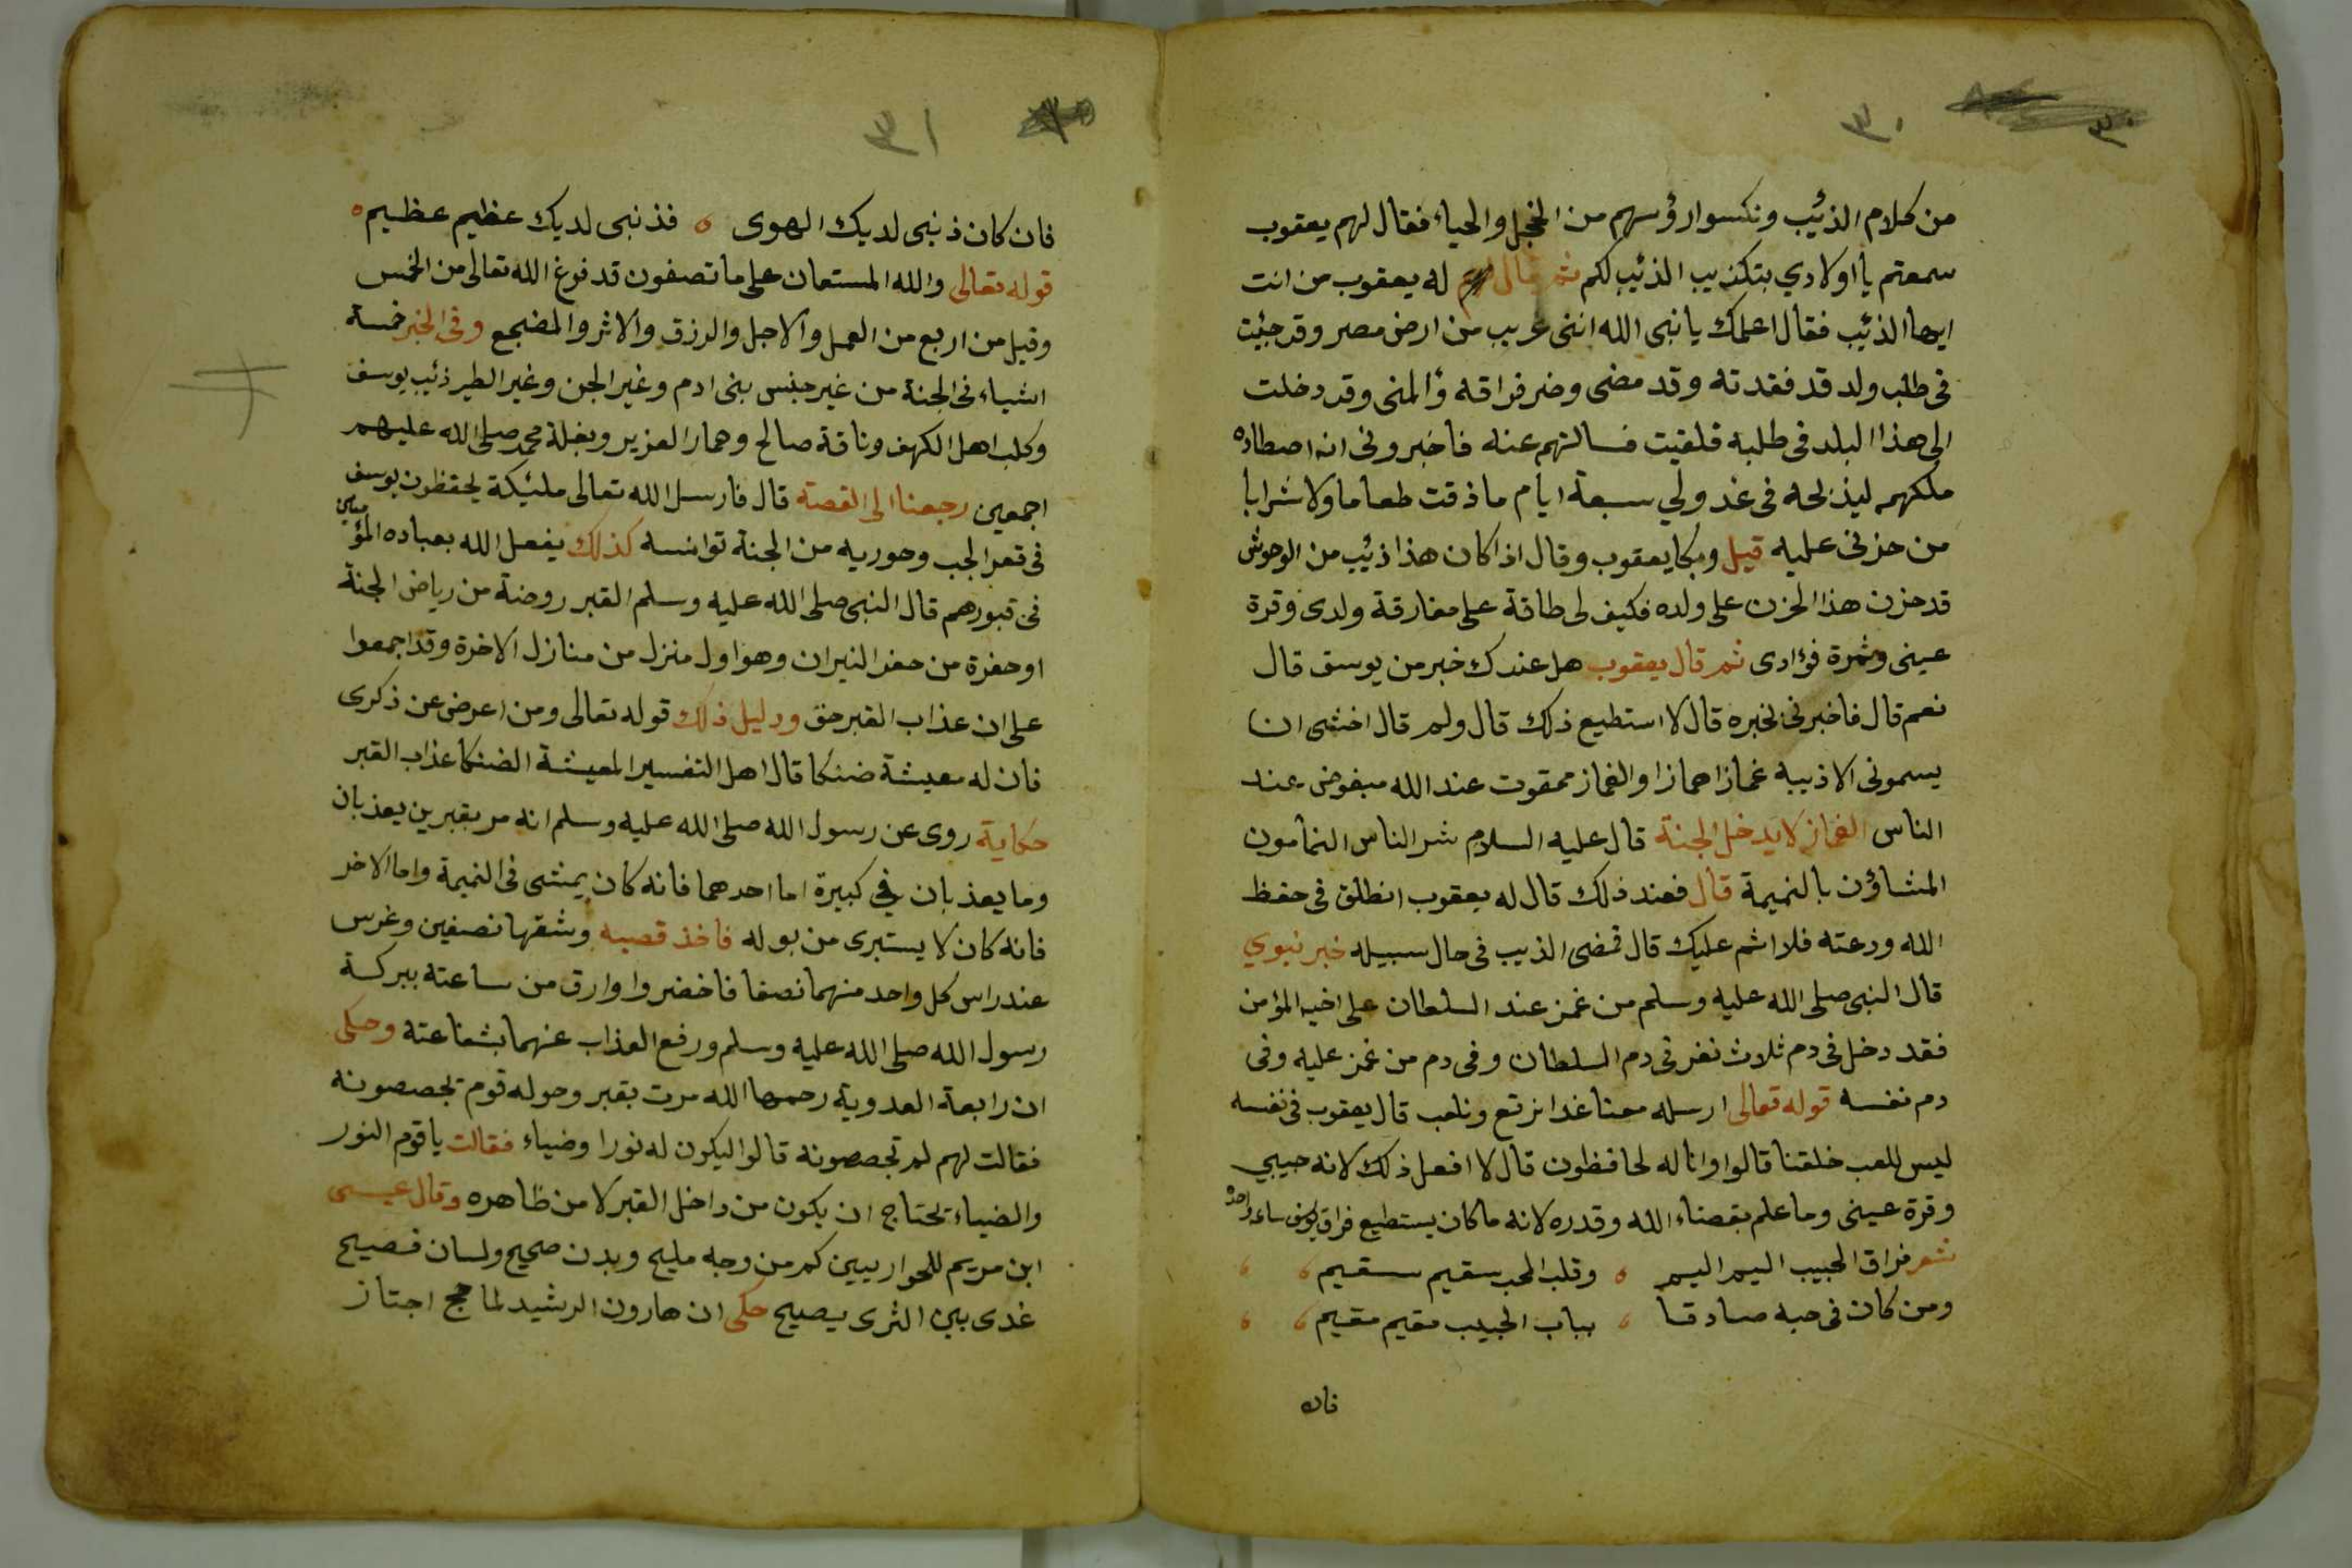 ٣٠
من كلام الذئيب ونكسوا رؤسهم من الخجل والحياء فقال لهم يعقوب
سمعتم يا اولادي بتكذيب الذئيب لكم ثم قال له يعقوب من انت
ايها الذئيب فقال اعلمك يا نبى الله اننى غريب من ارض مصر وقد جئيت
فى طلب ولد قد فقدته وقد مضى وضر فراقه وألمنى وقد دخلت
الى هذا البلد فى طلبه فلقيت فسالتهم عنه فاخبرونى انه اصطاده
ملكهم ليذبحه فى غد ولي سبعة ايام ما ذقت طعاما ولا شرابا
من حزنى عليه قيل وبكا يعقوب وقال اذا كان هذا ذئيب من الوحوش
قد حزن هذا الحزن على ولده فكيف لى طاقة على مفارقة ولدى وقرة
عينى وثمرة فؤادى ثم قال يعقوب هل عندك خبر من يوسف قال
نعم قال فاخبرنى بخبره قال لا استطيع ذلك قال ولم قال اخشى ان
يسمونى الاذيبه غمازا همازا والغماز ممقوت عند الله مبغوض عند
الناس الغماز لا يدخل الجنة قال عليه السلام شر الناس النمامون
المشاؤن بالنميمة قال فعند ذلك قال له يعقوب انطلق فى حفظ
الله ودعته فلا اثم عليك قال فمضى الذيب فى حال سبيله خبر نبوي
قال النبى صلى الله عليه وسلم من غمز عند السلطان على اخيه المؤمن
فقد دخل فى دم ثلاث نفر فى دم السلطان وفى دم من غمز عليه وفى
دم نفسه قوله تعالى ارسله معنا غدا نرتع ونلعب قال يعقوب فى نفسه
ليس للعب خلقنا قالوا وانا له لحافظون قال لا افعل ذلك لانه حبيبي
وقرة عينى وما علم بقضاء الله وقدره لانه ما كان يستطيع فراق يوسف ساعة واحدة
شعر فراق الحبيب اليم اليم وقلب المحب سقيم سقيم
ومن كان فى حبه صادقا بباب الحبيب مقيم مقيم
فان
٣١
فان كان ذنبى لديك الهوى فذنبى لديك عظيم عظيم
قوله تعالى والله المستعان على ما تصفون قد فرغ الله تعالى من الخمس
وقيل من اربع من العمل والاجل والرزق والاثر والمضجع وفى الخبر خمسة
اشياء فى الجنة من غير جنس بنى ادم وغير الجن وغير الطير ذئيب يوسف
وكلب اهل الكهف وناقة صالح وحمار العزير وبغلة محمد صلى الله عليهم
اجمعين رجعنا الى القصة قال فارسل الله تعالى مليكة يحفظون يوسف
فى قعر الجب وحوريه من الجنة توانسه كذلك يفعل الله بعباده المؤمنين
فى قبورهم قال النبى صلى الله عليه وسلم القبر روضة من رياض الجنة
او حفرة من حفر النيران وهو اول منزل من منازل الاخرة وقد اجمعوا
على ان عذاب القبر حق ودليل ذلك قوله تعالى ومن اعرض عن ذكرى
فان له معيشة ضنكا قال اهل التفسير المعيشة الضنكا عذاب القبر
حكاية روى عن رسول الله صلى الله عليه وسلم انه مر بقبرين يعذبان
وما يعذبان في كبيرة اما احدهما فانه كان يمشى فى النميمة واما الاخر
فانه كان لا يستبرى من بوله فاخذ قصبه وشقها نصفين وغرس
عند راس كل واحد منهما نصفا فاخضروا وارق من ساعته ببركة
رسول الله صلى الله عليه وسلم ورفع العذاب عنهما بشفاعته وحكى
ان رابعة العدوية رحمها الله مرت بقبر وحوله قوم تجصصونه
فقالت لهم لم تجصصونه قالوا ليكون له نورا وضياء فقالت يا قوم النور
والضياء تحتاج ان يكون من داخل القبر لا من ظاهره وقال عيسى
ابن مريم للحواريين كم من وجه مليح وبدن صحيح ولسان فصيح
غدى بين الثرى يصيح حكى ان هارون الرشيد لما حج اجتاز